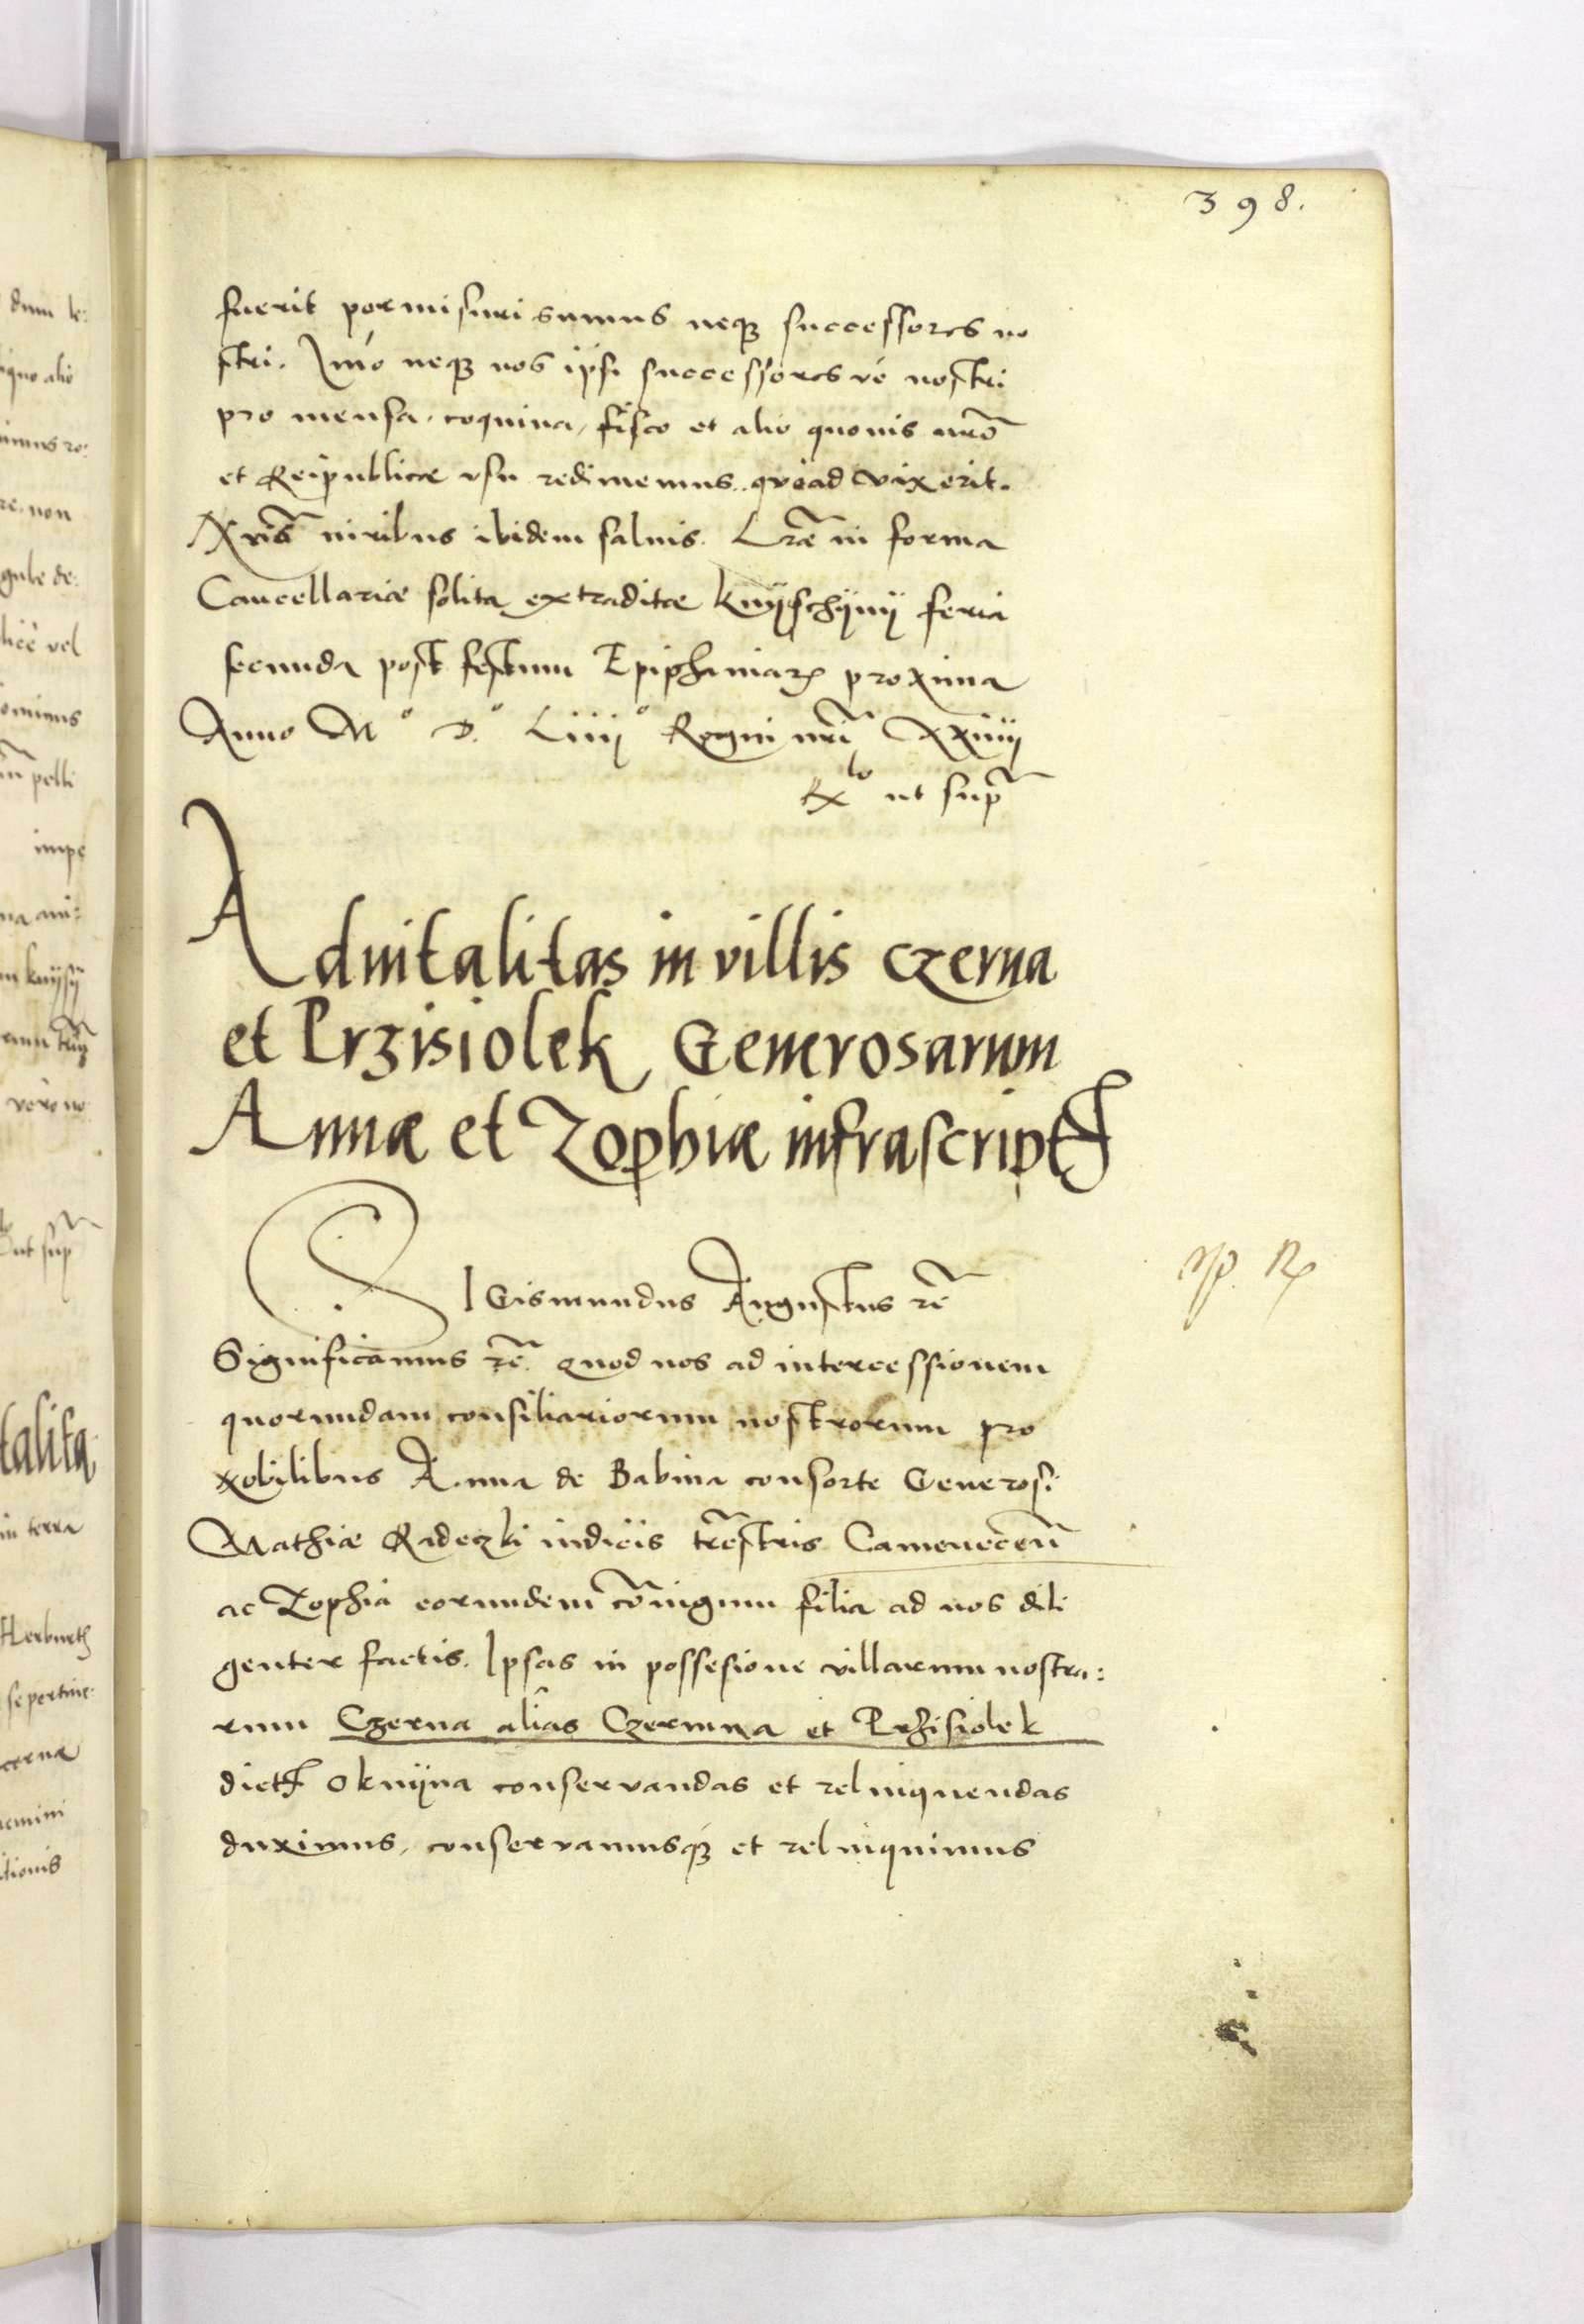 398.
fuerit permissuri sumus neqȝ successores no
stri. Imo neqȝ nos ipsi successores ve nostri
pro mensa, coquina, fisco et alio quouis nro͂
et Reipublicæ vsu redimemus. quoad vixerit.
Nris͂ iuribus ibidem saluis. Lræ͂ in forma
Cancellariæ solita extraditæ knÿschÿnÿ feria
secunda post festum Epiphaniarꝫ proxima
Anno Mo D.o Liiijo Regni nri͂ XXiiij
Rlo ut sup͂
Aduitalitas in villis Czerna
et Przisiolek Generosarum
Annæ et Zophiæ infrascript
SIGismundus Augustus rc͂
Significamus rc͂. Quod nos ad intercessionem
quorundam consiliariorum nostrorum pro
Nobilibus Anna de Babina consorte Generosi
Mathiæ Radeczki iudicis tre͂stris Camenecen͂
ac Zophia eorundem co͂niugum filia ad nos dili
genter factis. Ipsas in possesione villarum nostra:
rum Czerna alias Czermna et Przisiolek
dict Oknÿna conseruandas et relinquendas
duximus, conseruamusqȝ et relinquimus
dum le:
iquo alio
re. non
gule de:
lice vel
pelli
impe
talita
in terra
Herburth
itionis